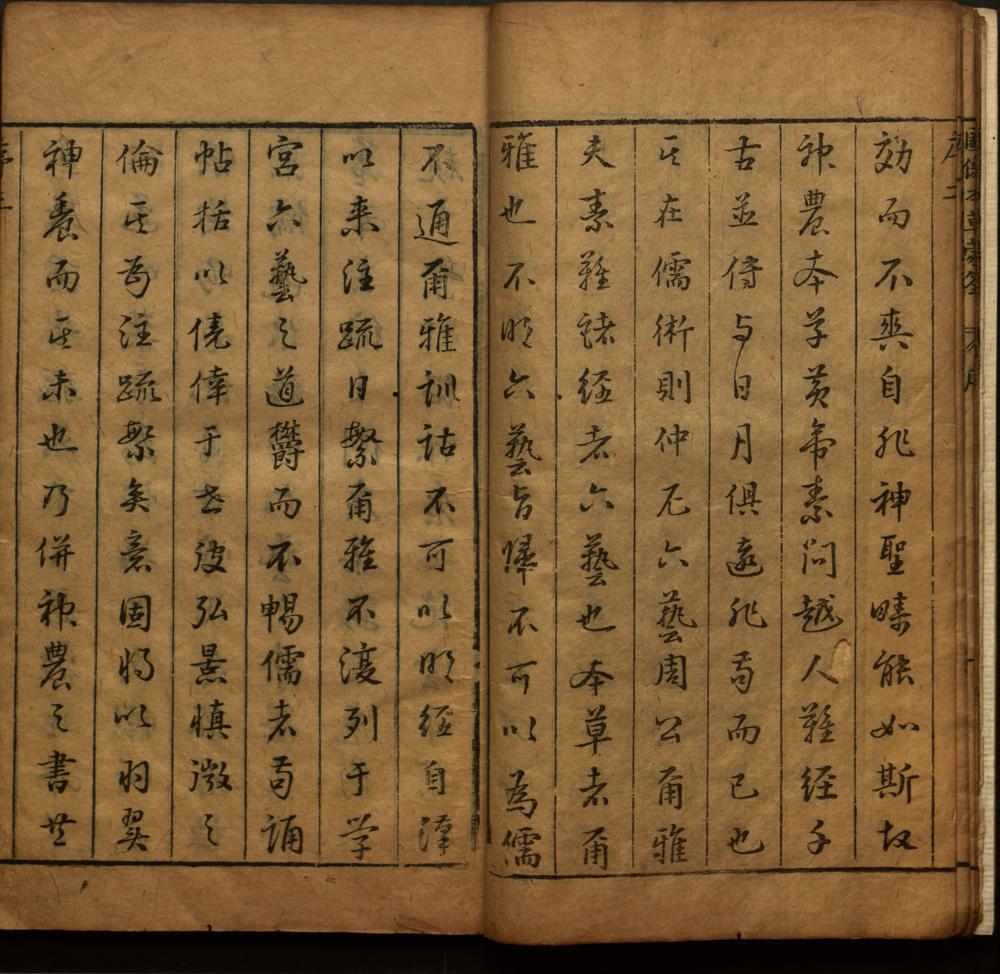 圖像本草蒙筌
序二
効而不爽自非神聖疇能如斯故
神農本草黃帝素問越人難經千
古並傳与日月俱遠非苟而已也
其在儒術則仲尼六藝周公爾雅
夫素難諸經者六藝也本草者爾
雅也不明六藝旨歸不可以為儒
不通爾雅訓詁不可以明經自漢
以来注疏日繁爾雅不復列于学
宮六藝之道欝而不暢儒者苟誦
帖括以僥倖于世彼弘景慎微之
倫其為注疏繁矣意固將以羽翼
神養而其末也乃併神農之書